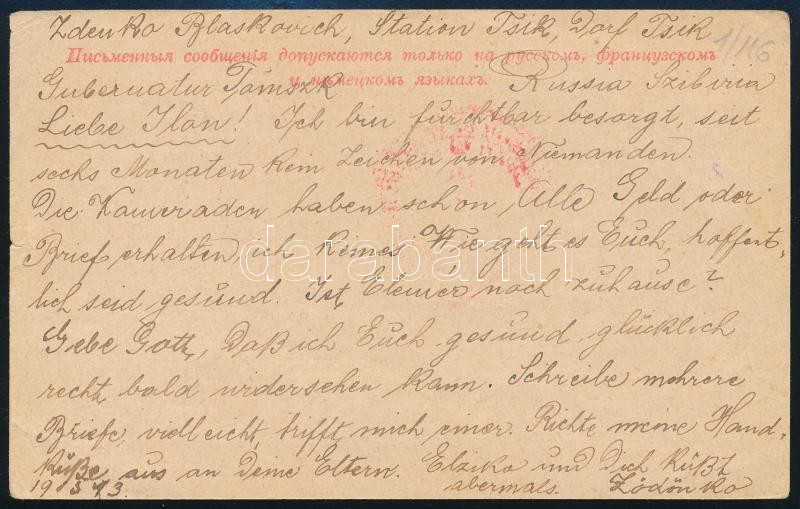 Zdenko Blaskovich, Station Tsik, Dorf Tsik
1/116
Письменныя сообщенія допускаются только на русскомъ, французскомъ
и нѣмецкомъ языкахъ.
Gubernatur Tomszk Russia Szibiria
Liebe Ilon! Ich bin furchtbar besorgt, seit
sechs Monaten kein Zeichen von Niemanden.
Die Kameraden haben schon Alle Geld oder
Brief erhalten ich keines Wie geht es Euch, hoffent-
lich seid gesund. Ist Elemér noch zuhause?
Gebe Gott, Daß ich Euch gesund glücklich
recht bald widersehen kann. Schreibe mehrere
Briefe, vielleicht, trifft mich einer. Richte meine Hand-
küße aus an deine Eltern. Elziko und Dich küßt
abermals. Zdönko
darabanth